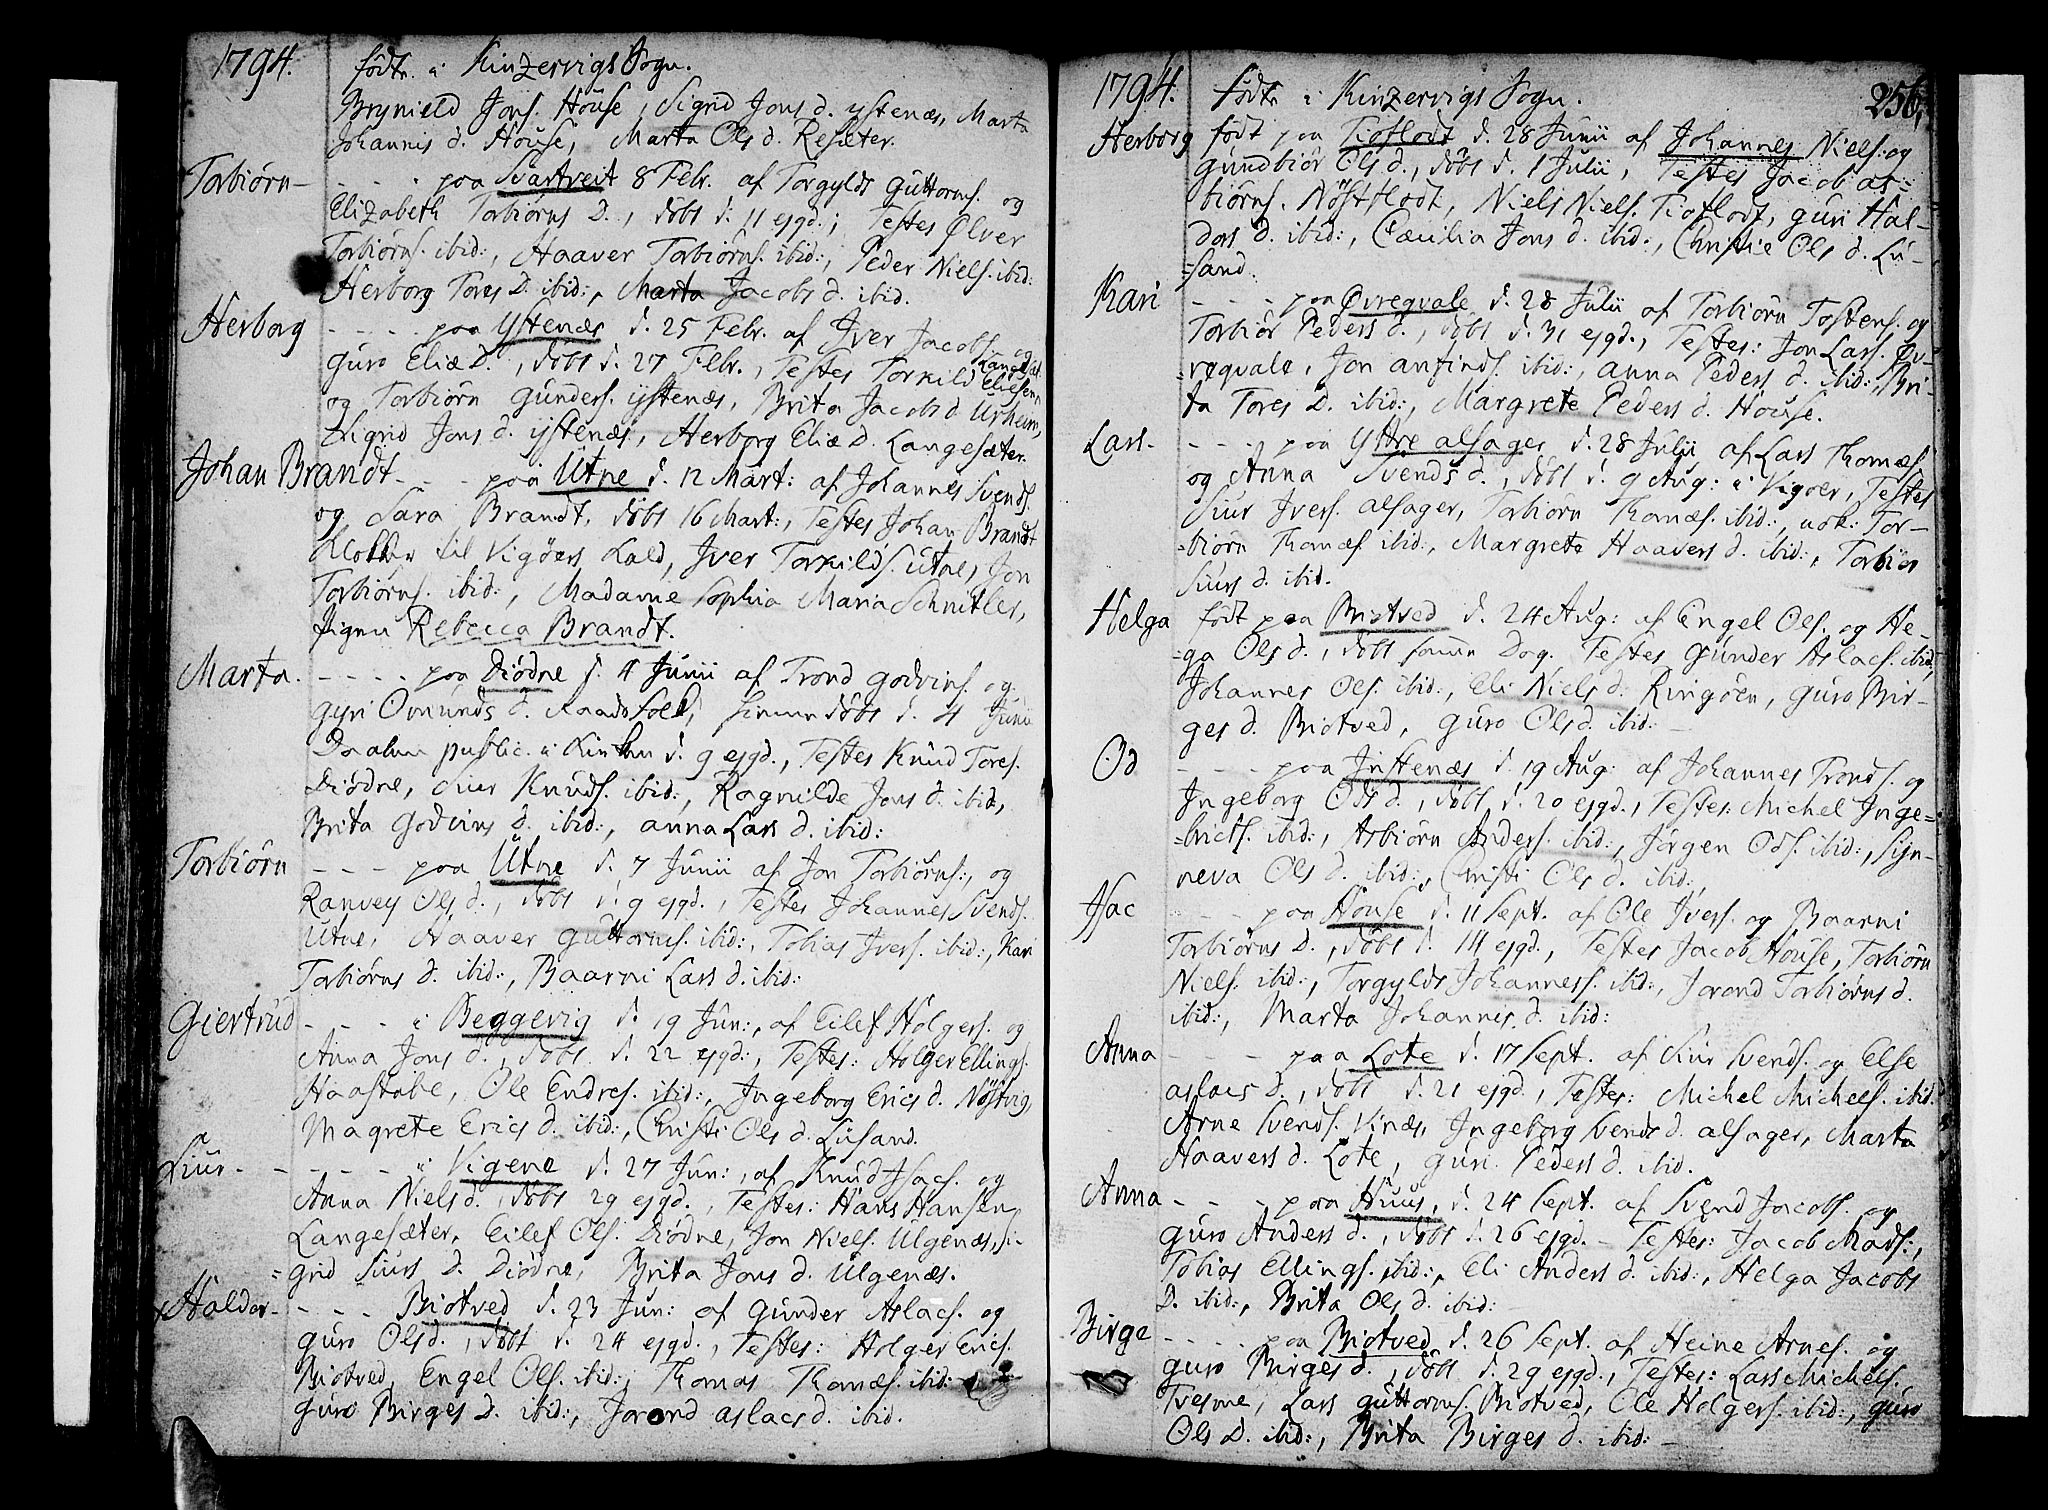 1794. födte i Kinzervigs Sogn.
Brynield Jons. House, Sigrid Jons d. ystenæs, Marta
Johannis d. House, Marta Ols d. Resæter.
Torbiörn - - - paa Svartveit 8 Febr. af Torgyld Guttorms. og
Elizabeth Torbiörns D., döbt d. 11 ejgd.; Testes Ölver
Torbiörns. ibid:, Haaver Torbiörns. ibid:, Peder Niels. ibid:
Herborg Tores D. ibid:, Marta Jacobs d. ibid.
Herborg - - - - paa Ystenæs d. 25 Febr. af Jver Jacobs. og
Guro Eliæ D., döbt d. 27 Febr., Testes Torkild Eliesen Langesæt.
og Torbiörn Gunders. ystenæs, Brita Jacobs d. Urheim,
Sigrid Jons d. ystenæs, Herborg Eliæ D. Langesæter.
Johan Brandt - - - paa Utne d. 12 Mart: af Johannes Svends.
og Sara Brandt, döbt 16 Mart:, Testes Johan Brandt
Klokker til Vigöers Kald, Jver Torkilds. Utne, Jon
Torbiörns. ibid:, Madame Sophia Maria Schnitler,
Pigen Rebecca Brandt.
Marta. - - - - paa Diödne d. 4 Junii af Trond Godvins. og
Gyri Omunds d. hiemmedöbt d. 4 Junii
Daaben public. i Kirken d. 9 ejgd., Testes Knud Tores.
Diödne, Siur Knuds. ibid:, Ragnilde Jons d. ibid,
Brita Godvins d. ibid:, anna Lars d. ibid:
Torbiörn - - - paa Utne d. 7 Junii af Jon Torbiörns:, og
Ranvey Ols d., döbt d. 9 ejgd., Testes Johannes Svends.
Utne, Haaver Guttorms. ibid:, Tobias Jvers. ibid:, Kari
Torbiörns d. ibid:, Baarni Lars d. ibid:
Giertrud - - - i Beggevig d. 19 Jun:, af Eilef Holgers. og
Anna Jons d., döbt d. 22 ejgd:, Testes: Holger Ellings.
Haastabe, Ole Endres. ibid:, Jngeborg Erics d. Nöstvig,
Magrete Erics d. ibid:, Christi Ols d. Lusand.
Siur - - - - - i Vigene d. 27 Jun:, af Knud Jsacs. og
Anna Niels d., döbt 29 ejgd., Testes: Hans Hansen
Langesæter, Eilef Ols. Diödne, Jon Niels. Ulgenæs, Si-
=grid Siurs D. Diödne, Brita Jons d. Ulgenæs.
Haldor - - - - Biotved d. 23 Jun: af Gunder Aslacs. og
Guro Ols d., döbt d. 24 ejgd., Testes: Holger Erics.
Biotved, Engel Ols. ibid:, Thomas Thomæs. ibid:
Guro Birges D. ibid:, Jorond aslacs d. ibid.
1794. födte i Kinzervigs Sogn. 256.
Herborg födt paa Tioflodt d. 28 Junii af Johannes Niels: og
Gundbiör Ols d., döbt d. 1 Julii, Testes Jacob as=
biörns. Nöstflodt, Niels Niels. Tioflodt, Guri Hal-
dors d. ibid:, Cæcilia Jons d. ibid:, Christie Ols d. Lu-
=sand.
Kari - - - - paa Ovregvale d. 28 Julii af Torbiörn Tostens. og
Torbiör Peders d., döbt d. 31 ejgd., Testes: Jon Lars. Öv-
=regvale, Jon anfinds. ibid:, anna Peders d. ibid:, Bri-
ta Tores D. ibid:, Margrete Peders d. House.
Lars - - - - paa Yttre alsager d. 28 Julii af Lars Thomæs.
og Anna Svends d., döbt d. 9 Aug: i Vigöer, Testes
Siur Jvers. alsager, Torbiörn Thomæs. ibid:, nok: Tor-
=biörn Thomæs. ibid:, Margreta Haavers d. ibid:, Torbiör
Siurs d. ibid.
Helga födt paa Biotved d. 24 Aug: af Engel Ols. og He-
=ga Ols d., döbt samme Dag. Testes Gunder Aslacs. ibid,
Johannes Ols. ibid:, Eli Niels d. Ringöen, Guro Bir-
ges d. Biotved, Guro Ols d. ibid:
Od - - - - paa Jnstenæs d. 19 Aug: af Johannes Tronds. og
Jngeborg Ods d., döbt d. 20 ejgd., Testes: Michel Jnge=
=bricts. ibid:, Asbiörn Anders. ibid:, Jörgen Ods. ibid:, Syn-
neva Ols d. ibid:, Christi Ols d. ibid:,
Jsac - - - paa House d. 11 Sept. af Ole Jvers. og Baarni
Torbiörns D., döbt d. 14 ejgd., Testes Jacob House, Torbiörn
Niels. ibid:, Torgylds Johanness. ibid:, Jorond Torbiörns d.
ibid:, Marta Johannis d. ibid:
Anna - - - - paa Lote d. 17 Sept. af Siur Svends. og Else
aslacs d., döbt d. 21 ejgd., Testes: Michel Michels. ibid:
Arne Svends. Vinæs, Jngeborg Svends d. alsager, Marta
Haavers d. Lote, Guri Peders d. ibid.
Anna - - - - paa Huus, d. 24 Sept. af Svend Jacobs. og
Guro Anders d., döbt d. 26 ejgd. - Testes: Jacob Mads:,
Tobias Ellings. ibid:, Eli Anders d. ibid:, Helga Jacobs
D. ibid:, Brita Ols d. ibid:
Birge - - - - paa Biotved d. 26 Sept. af Heine Arnes. og
Guro Birges d., döbt d. 29 ejgd., Testes: Lars Michels.
Tvesme, Lars Guttorms. Biotved, Ole Holgers. ibid:, Guro
Ols D. ibid:, Brita Birges d. ibid: -